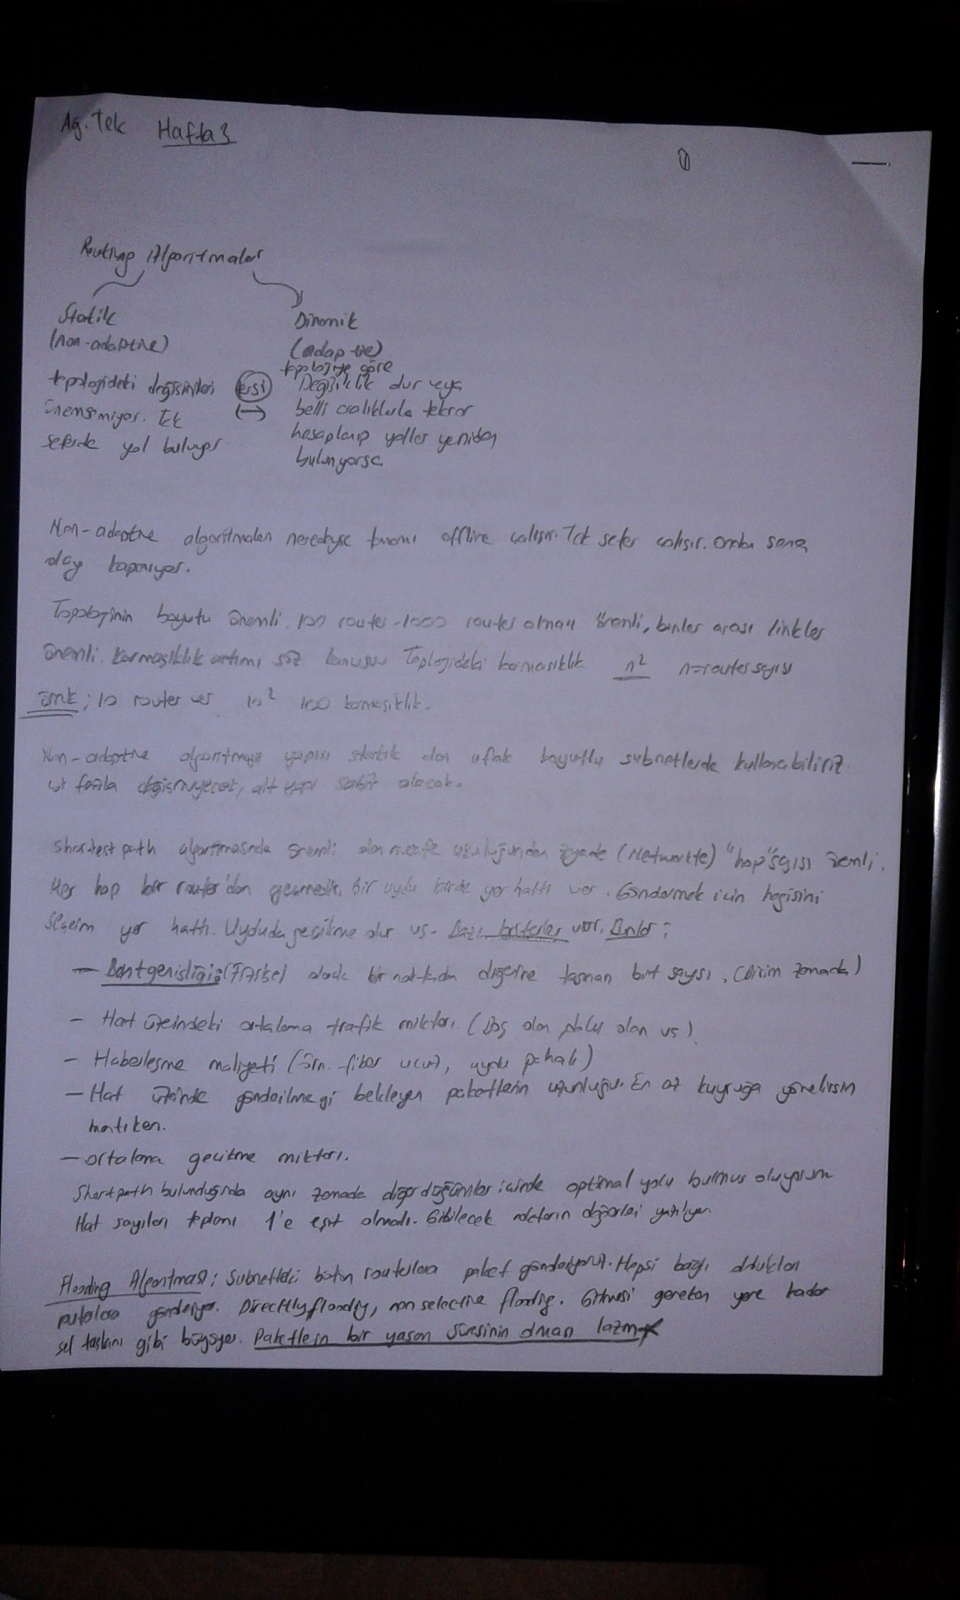 Ağ. Tek Hafta 3
1
Routing Algoritmaları
Statik
(non-adaptive)
topolojideki değişimleri
önemsemiyor. Tek
seferde yol buluyor
ersi
Dinamik
(adaptive)
topolojiye göre
Değişiklik olur veya
belli aralıklarla tekrar
hesaplanıp yollar yeniden
bulunuyorsa
Non-adaptive algoritmaları neredeyse tamamı offline çalışır. Tek sefer çalışır. Ondan sonra
olay kapanıyor.
Topolojinin boyutu önemli. 100 router - 1000 router olması önemli, bunlar arası linkler
önemli. Karmaşıklık artımı söz konusu Topolojideki karmaşıklık n² n=router sayısı
örnk; 10 router var 10² 100 karmaşıklık.
Non-adaptive algoritmayı yapısı statik olan ufak boyutlu subnetlerde kullanabiliriz.
çok fazla değişmeyecek, alt yapı sabit olacak.
Shortest path algoritmasında önemli olan mesafe uzunluğundan ziyade (Networkte) "hop" sayısı önemli.
Her hop bir router'dan geçmektir. Bir uydu birde yer hattı var. Göndermek için hangisini
seçeim yer hattı. Uyduda gecikme olur vs. Bazı kriterler var. Bunlar;
— Bantgenişliği: (Fiziksel) olarak bir noktadan diğerine taşınan bit sayısı. (Birim zamanda)
- Hat üzerindeki ortalama trafik miktarı. (Boş olan dolu olan vs)
- Haberleşme maliyeti (Örn. fiber ucuz, uydu pahalı)
- Hat üzerinde gönderilmeyi bekleyen paketlerin uzunluğu. En az kuyruğa yönelirsin
mantıken.
- ortalama gecikme miktarı.
Shortpath bulunduğunda aynı zamanda diğer düğümler içinde optimal yolu bulmuş oluyorum
Hat sayıları toplamı 1'e eşit olmalı. Gidilecek rotaların değerleri yazılıyor
Flooding Algoritması: Subnetteki bütün routerlara paket gönderiyoruz. Hepsi bağlı oldukları
routerlara gönderiyor. Directly flooding, non selective flooding. Gitmesi gereken yere kadar
sel taşkını gibi büyüyor. Paketlerin bir yaşam süresinin olması lazım